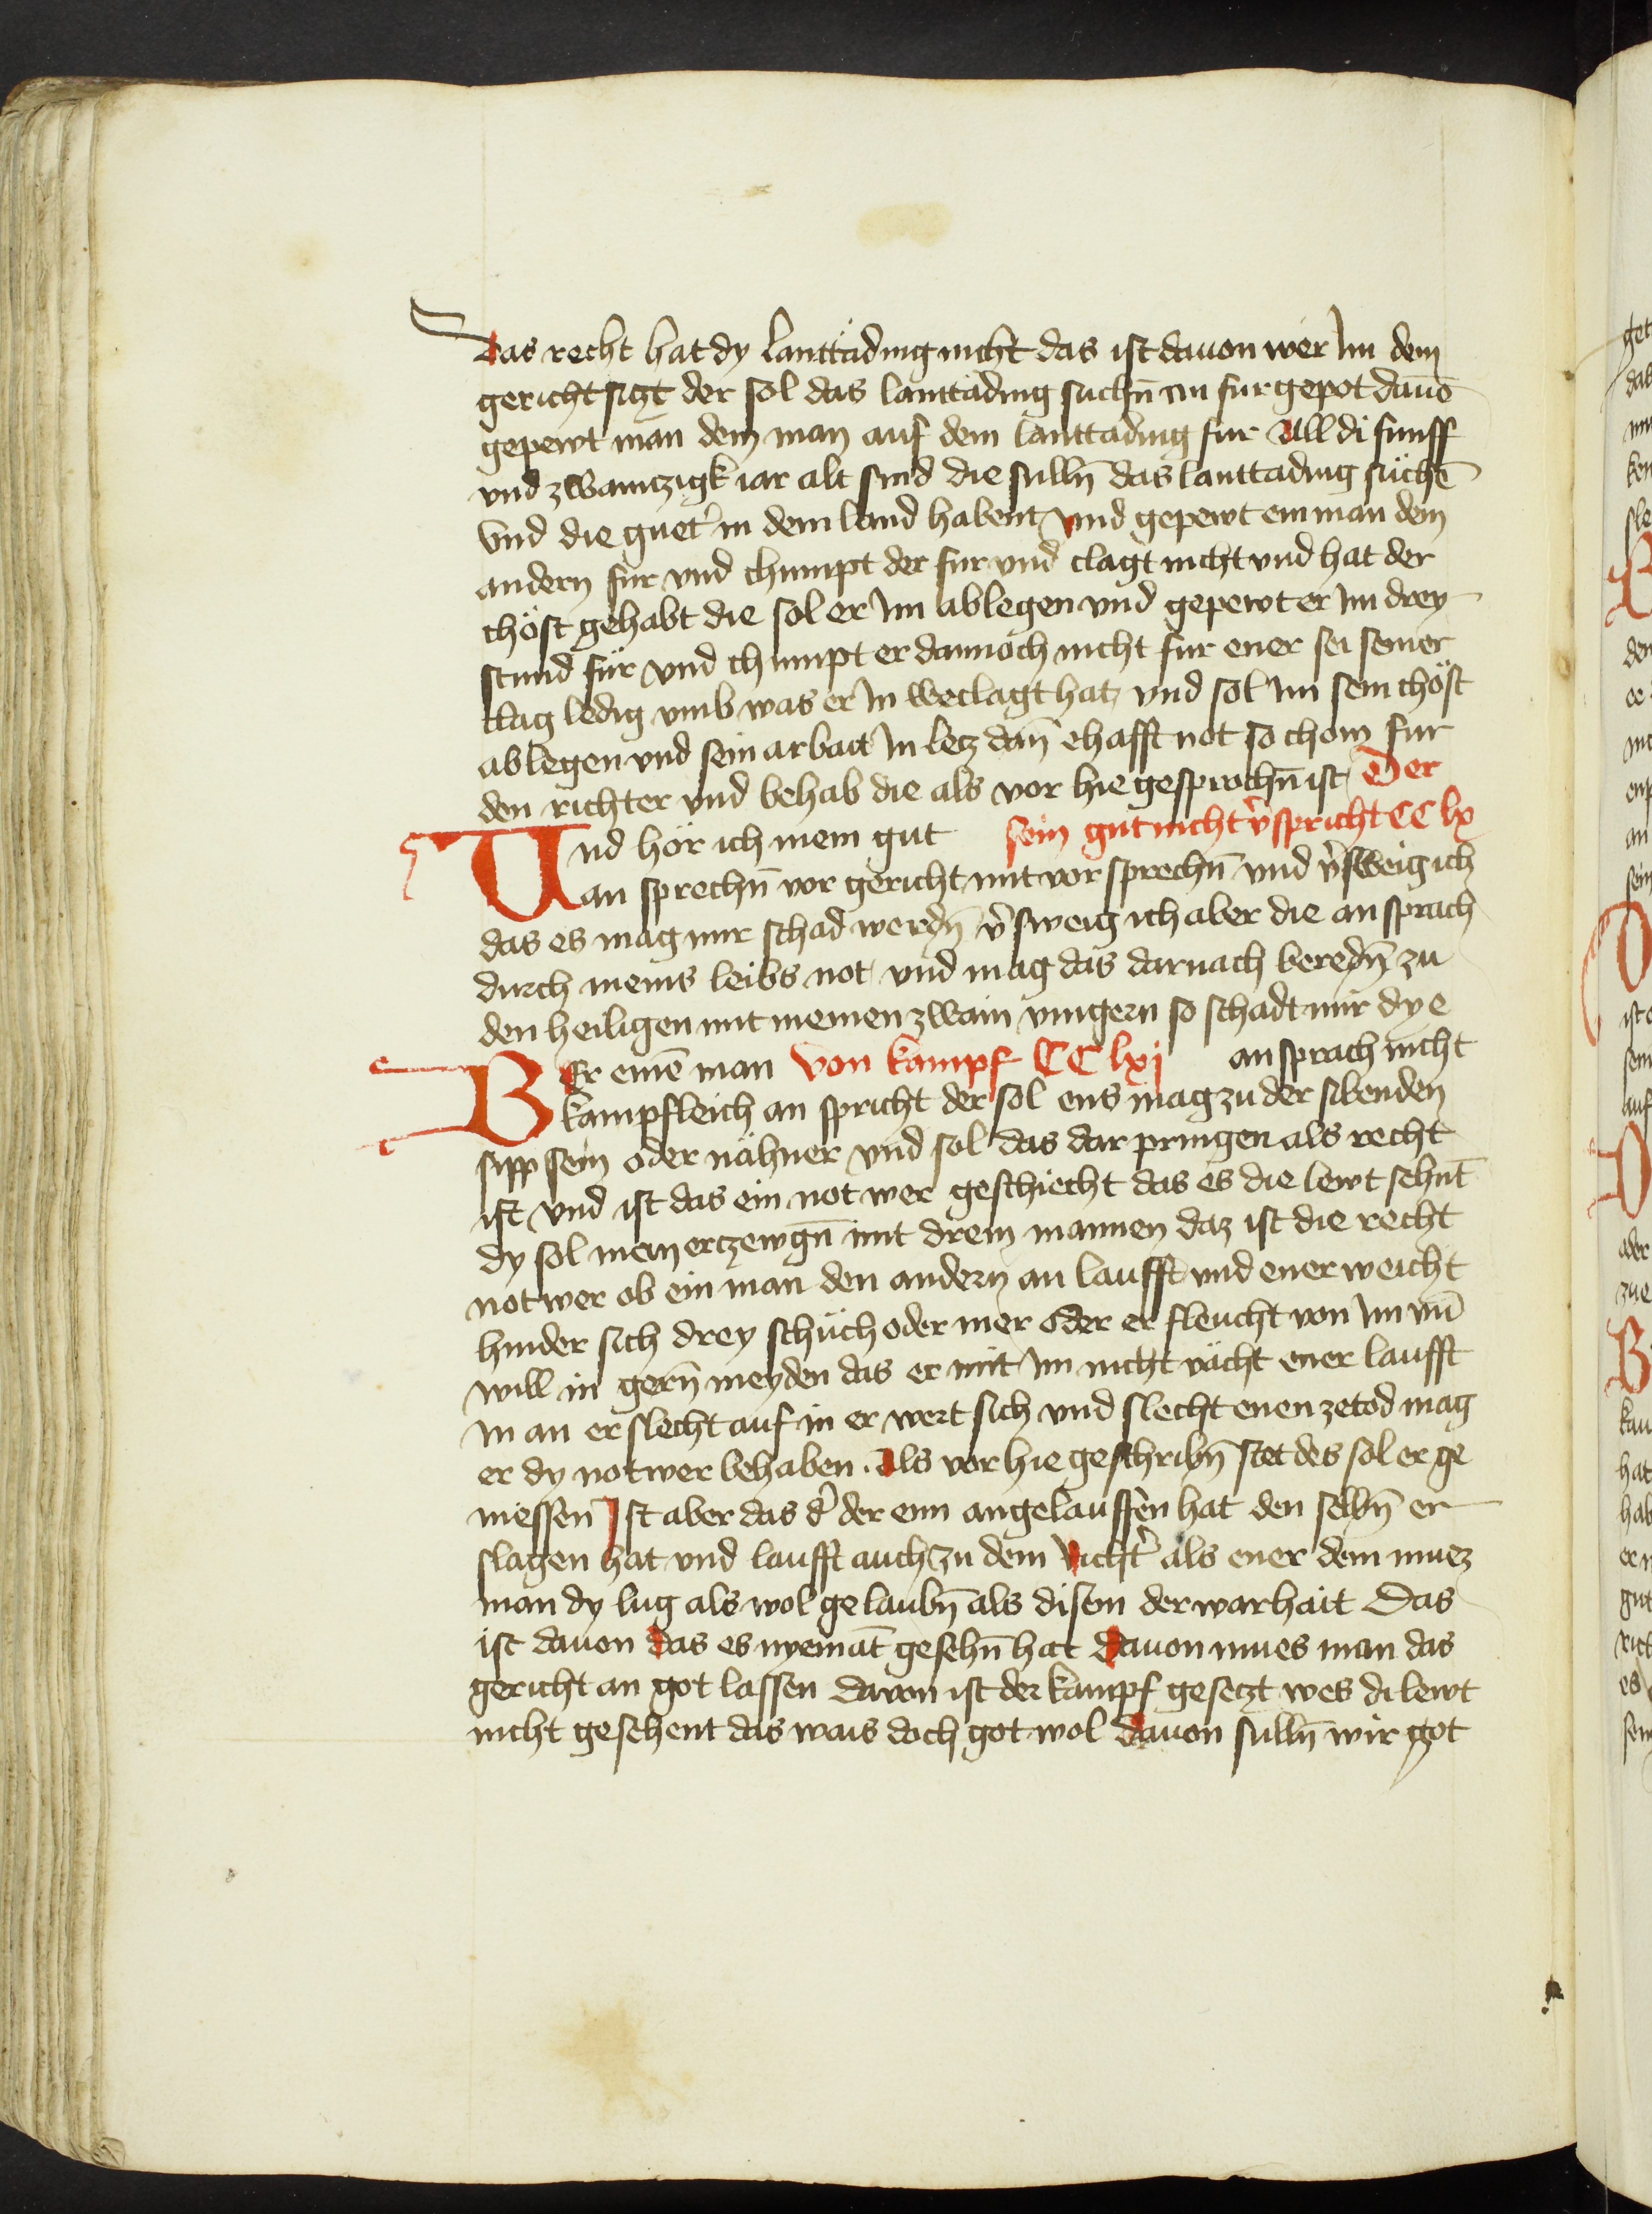 Das recht hat dy lanttäding nicht das ist dauon wer Im dem
gericht siczt der sol das lanttading suchn̄ an fur gepot dauō
gepewt man dem man auf dem lanttading fur All di funff
vnd zwainczigk iar alt sind die sulln̄ das lanttading süchē
Vnd die guet̓ in dem land habent vnd gepewt ein man dem
andern fur vnd chumpt der fur vnd clagt nicht vnd hat der
chöst gehabt die sol er Im ablegen vnd gepewt er Im drey
stund für vnd chumpt er dannoch nicht fur ener sei seiner
clag ledig vmb was er In weclagt hat vnd sol Im sein chöst
ablegen vnd sein arbait In lecz dan̄ ehafft not so chom fur
den richter vnd behab die als vor hie gesprochn̄ ist Der
sein gut nicht v̓spricht CC lx
Vnd hör ich mein gut
an sprechn̄ vor gericht mit vor sprechn̄ vnd v̓sweig ich
das es mag mir schad werdn̄ v̓sweig ich aber die an sprach
durch meins leibs not vnd mag das darnach beredn̄ zu
den heiligen mit meinen zwain vingern so schadt mir dy e
an sprach nicht
Von kampf CC lxj
BEr einē man
kampfleich an spricht der sol ens mag zu der sibenden
sipp sein oder nähner vnd sol das dar pringen als recht
ist vnd ist das ein not wer geschiecht das es die lewt sehnt̄
dy sol man erczewgn̄ mit drein mannen daz ist die recht
not wer ob ein man den andern an laufft vnd ener weicht
hinder sich drey schüch oder mer oder er fleucht von Im vn̄
will in gern̄ meyden das er mit Im nicht vächt ener laufft
In an er slecht auf in er wert sich vnd slecht enen ze tod mag
er dy notwer behaben. Als vor hie geschribn̄ stet des sol er ge
niessen Ist aber das d̓ der enn angelauffen hat den selbn̄ er
slagen hat vnd laufft auch zu dem richt̓ als ener dem muez
man dy lug als wol gelaubn̄ als disem der warhait Das
ist dauon das es nyemāt gesehn̄ hat dauon mues man das
gericht an got lassen dauon ist der kampf gesetzt wes di lewt
nicht gesehent das wais doch got wol dauon sulln̄ wir got